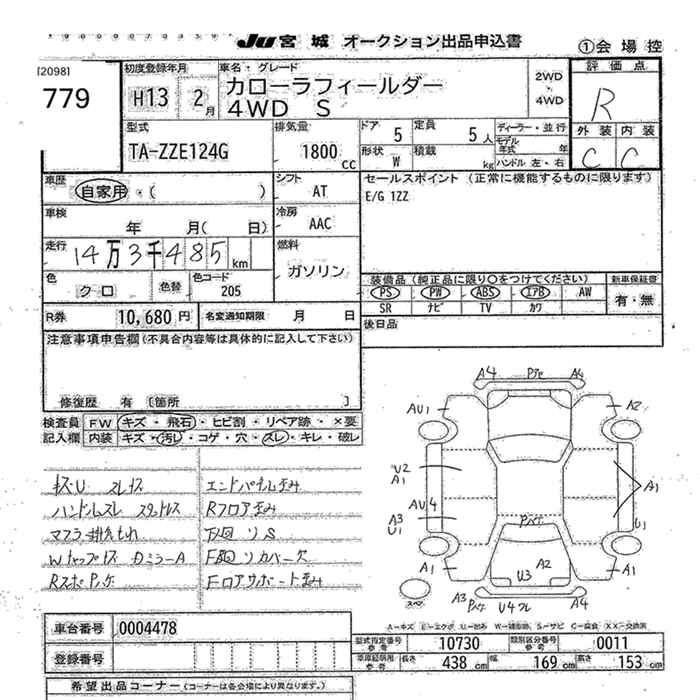 JU 宮城 オークション出品申込書
①会場控
[2098]
779
初度登録年月
H13 2月
車名・グレード
カローラフィールダー
4WD S
2WD
4WD
評価点
R
外装 内装
C C
型式
TA-ZZE124G
排気量
1800 cc
ドア 5
定員 5人
形状 W
積載 kg
ディーラー・並行
モデル年式 年
ハンドル 左・右
車歴
自家用・( )
シフト
AT
セールスポイント (正常に機能するものに限ります)
E/G 1ZZ
車検
年 月( 日)
冷房
AAC
走行
14万3千485km
燃料
ガソリン
色
クロ
色替
色コード
205
装備品 (純正品に限り○をつけてください)
新車保証書
PS PW ABS エアB AW
SR ナビ TV カワ
有・無
R券 10,680円
名変通知期限 月 日
後日品
注意事項申告欄 (不具合内容等は具体的に記入して下さい)
修復歴 有 〔箇所 〕
検査員記入欄
FW キズ・飛石・ヒビ割・リペア跡・×要
内装 キズ・汚レ・コゲ・穴・スレ・キレ・破レ
エンドパネル歪み
Rフロア歪み
ハンドルスレ
Fロアサポート歪み
A4 Pハセ A4
AU1 A2
U2
A1
AU4
A3
U1
A1
U1
A1 A1
Pハゲ
A2
U3
A3 Pハゲ U4 A4
スペア
A=キズ E=エクボ U=凹み W=補修跡 S=サビ C=腐食 XX=交換済
車台番号 0004478
登録番号
型式指定番号 参考 10730
類別区分番号 参考 0011
長さ 438 cm 幅 169 cm 高さ 153 cm
希望出品コーナー (コーナーは各会場により異なります。)